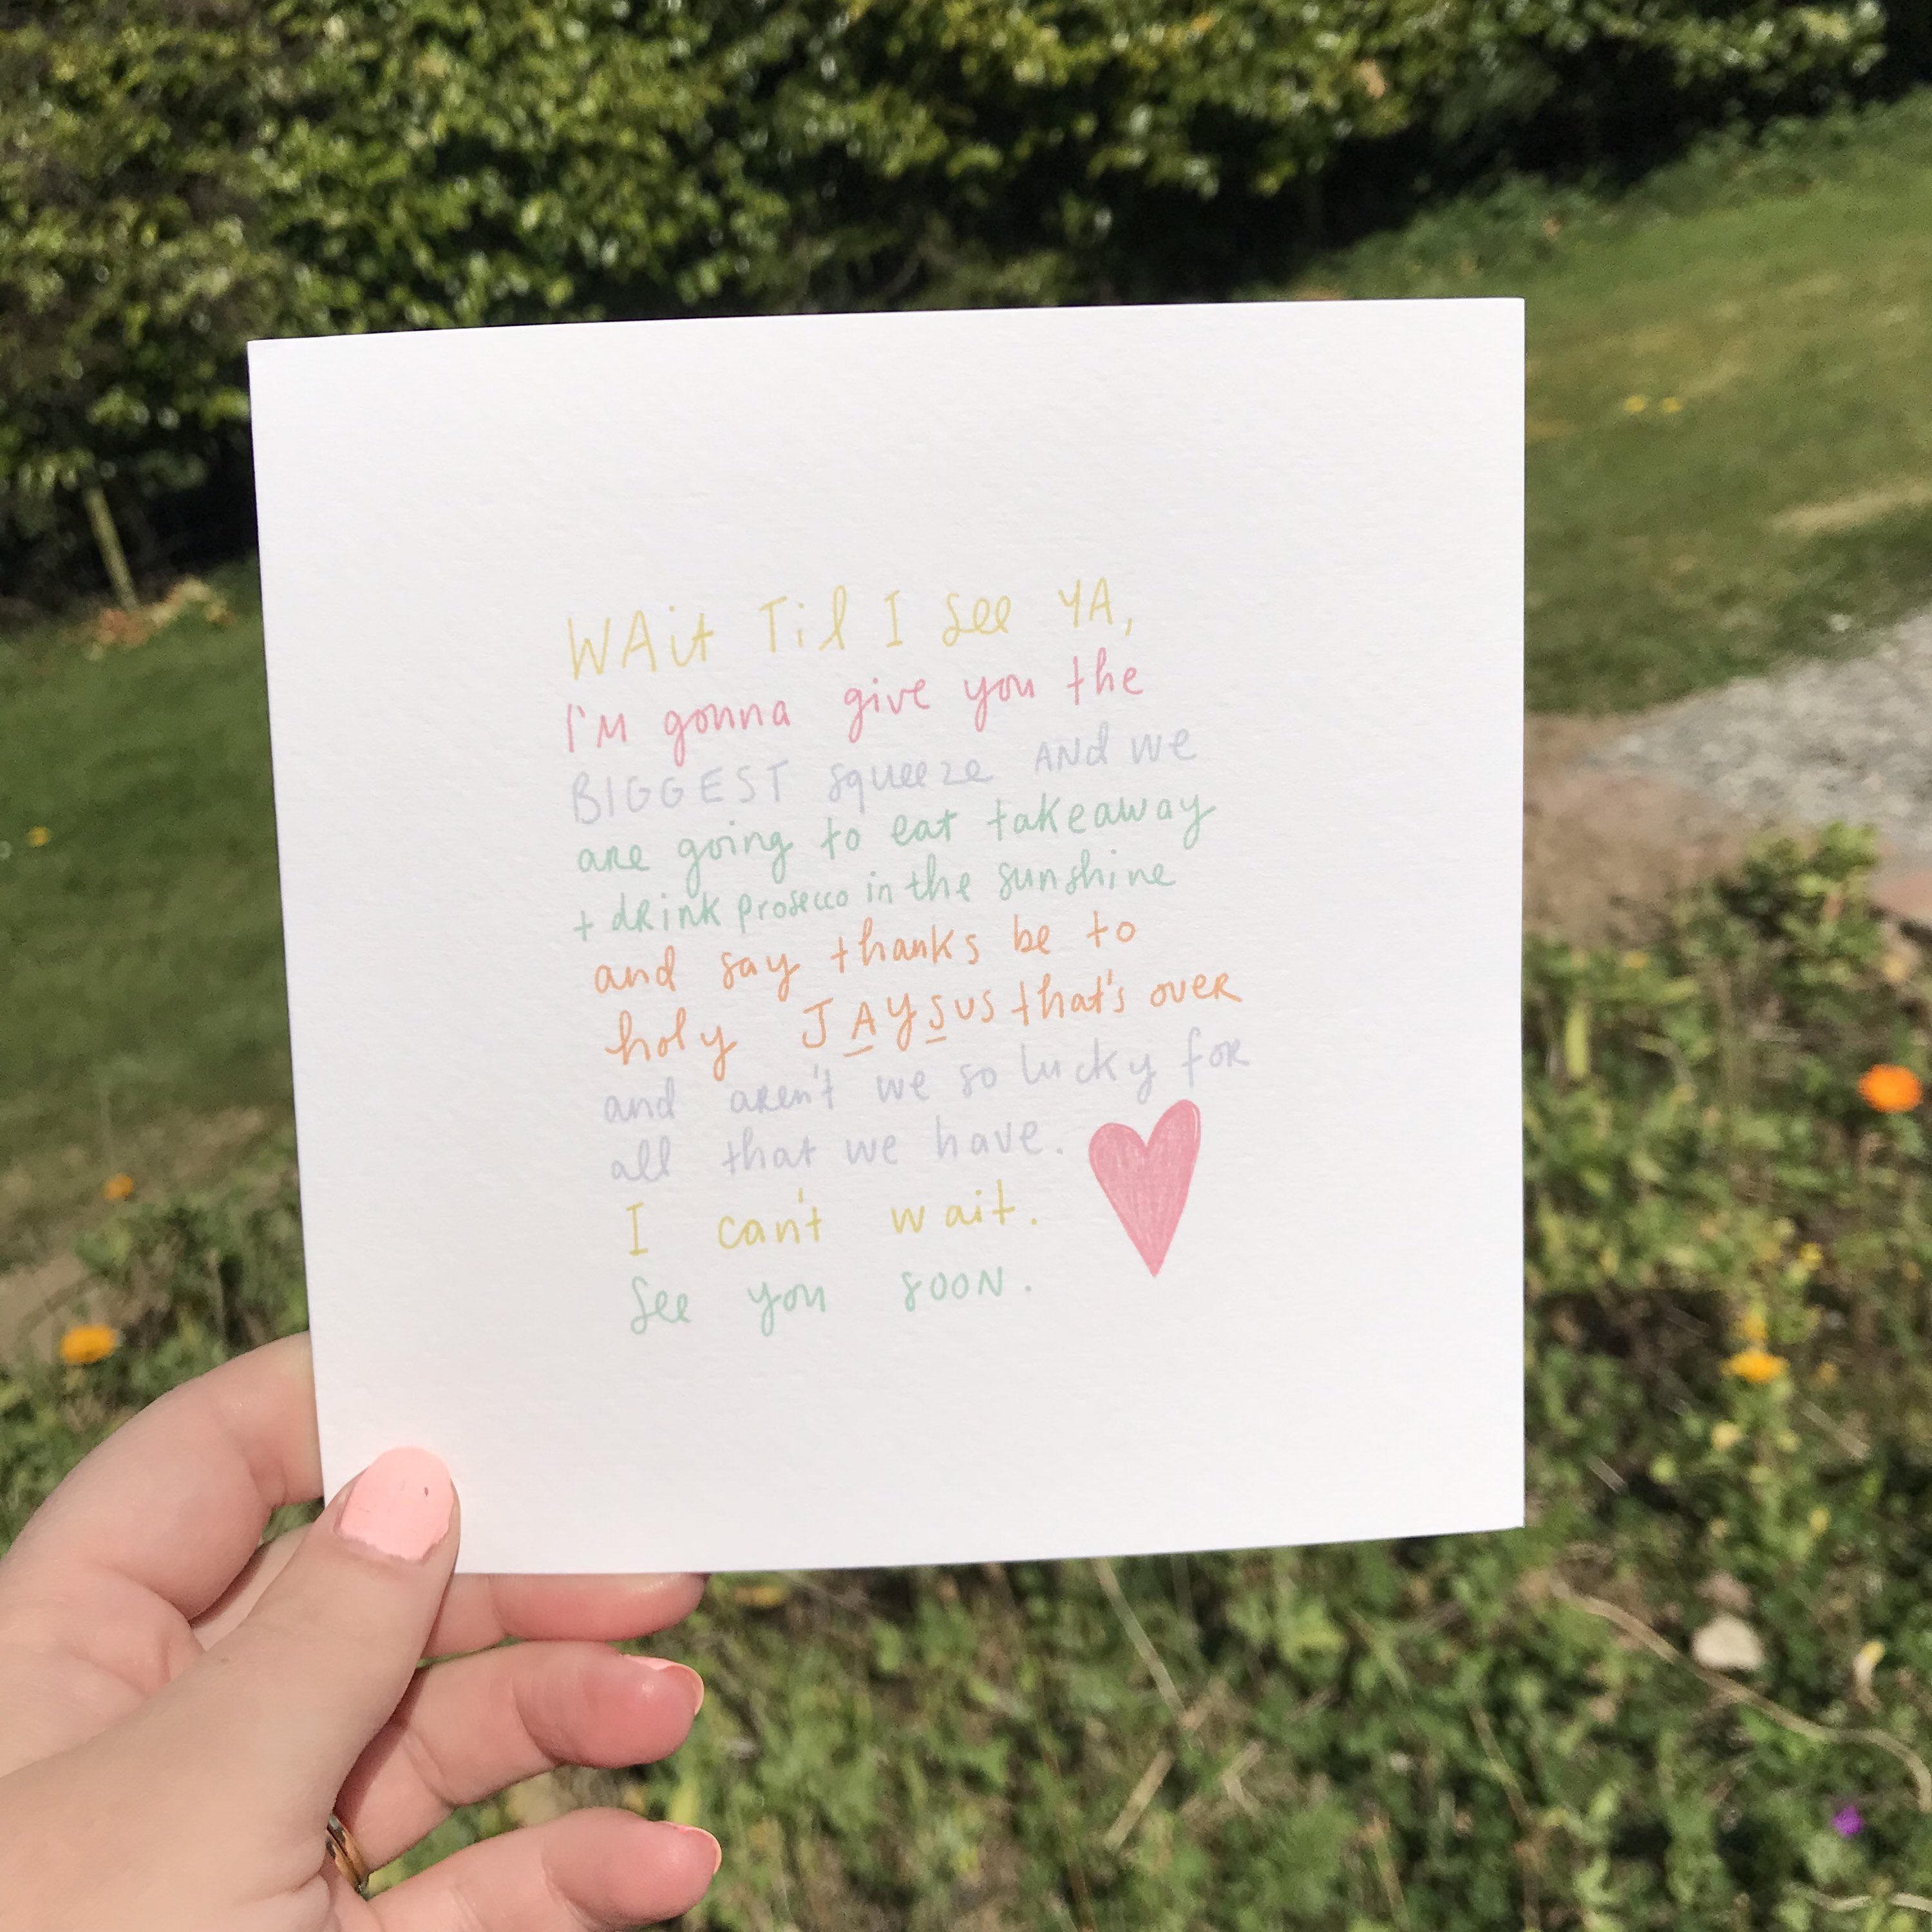 WAit Til I see YA,
I'M gonna give you the
BIGGEST squeeze ANd we
are going to eat takeaway
+ drink prosecco in the sunshine
and say thanks be to
holy JAYSUS that's over
and aren't we so lucky for
all that we have.
I can't wait.
See you SOON.